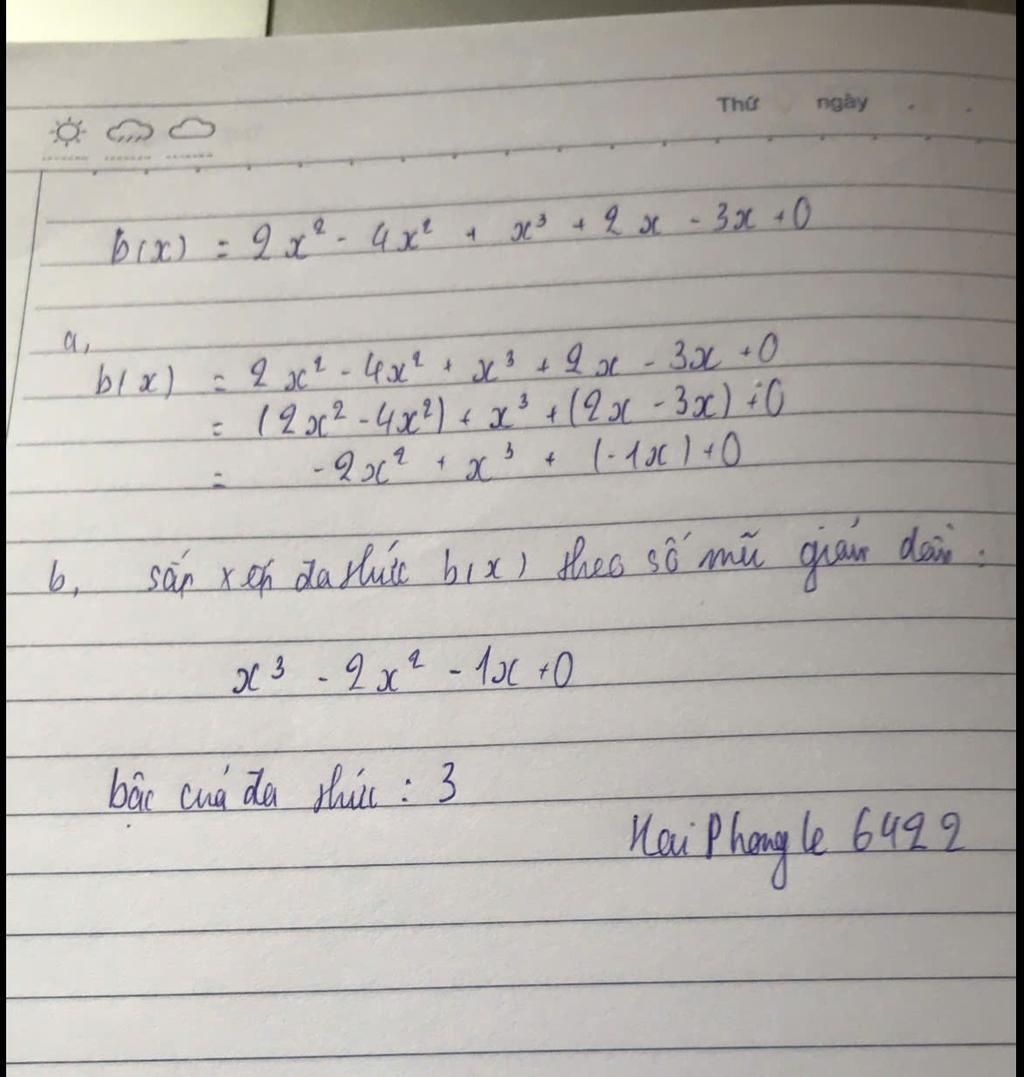 Thứ ngày
b(x) = 2x² - 4x² + x³ + 2x - 3x + 0
a,
b(x) = 2x² - 4x² + x³ + 2x - 3x + 0
= (2x² - 4x²) + x³ + (2x - 3x) + 0
= -2x² + x³ + (-1x) + 0
b, sắp xếp đa thức b(x) theo số mũ giảm dần :
x³ - 2x² - 1x + 0
bậc cuả đa thức : 3
Hai Phong le 6422